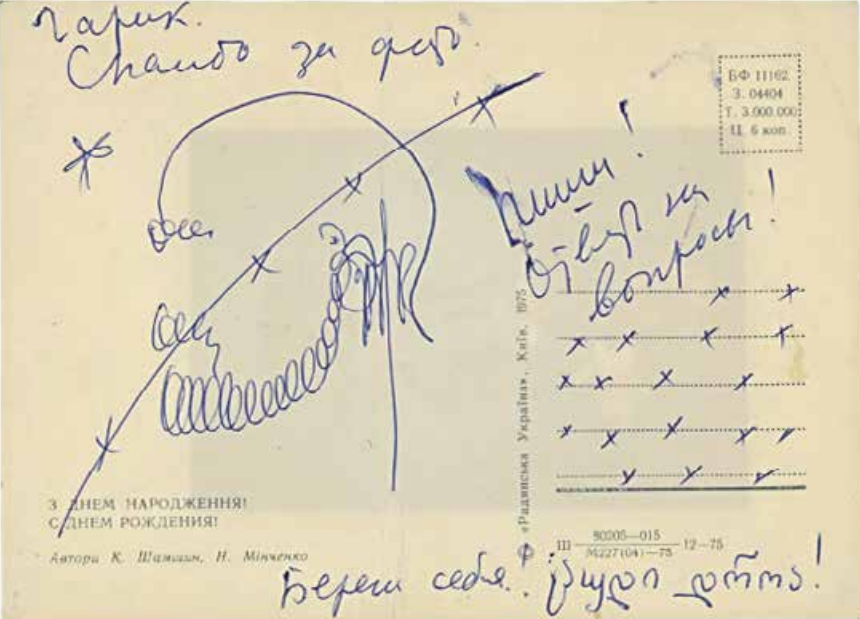 Гарик.
Спасибо за фото.
БФ 11162
З. 04404
Т. 3.000.000
Ц. 6 коп.
Пиши!
Ответ на
вопросы!
«Радянська Україна», Київ, 1975
З ДНЕМ НАРОДЖЕННЯ!
С ДНЕМ РОЖДЕНИЯ!
Автори К. Шамшин, Н. Мінченко
Ш 80205—015 12—75
М227(04)—75
Береги себя! ცუდი დროა!